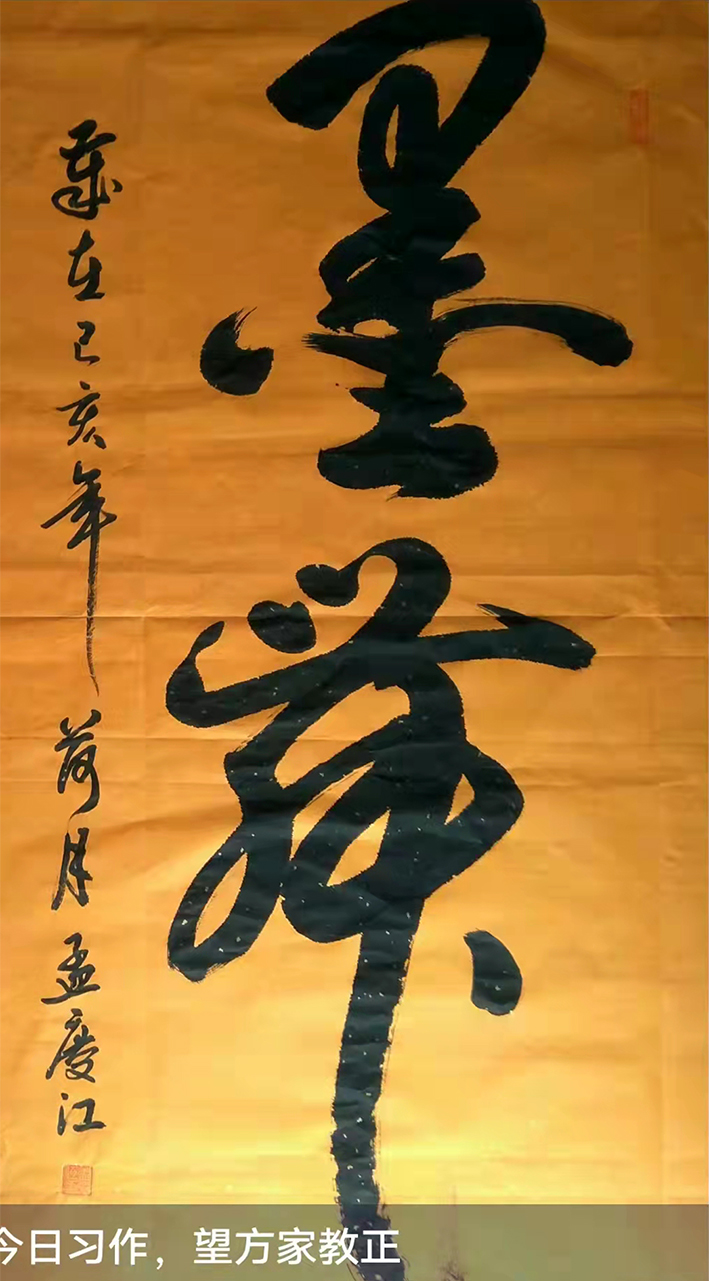 墨舞
歲在己亥年荷月孟慶江
今日习作，望方家教正